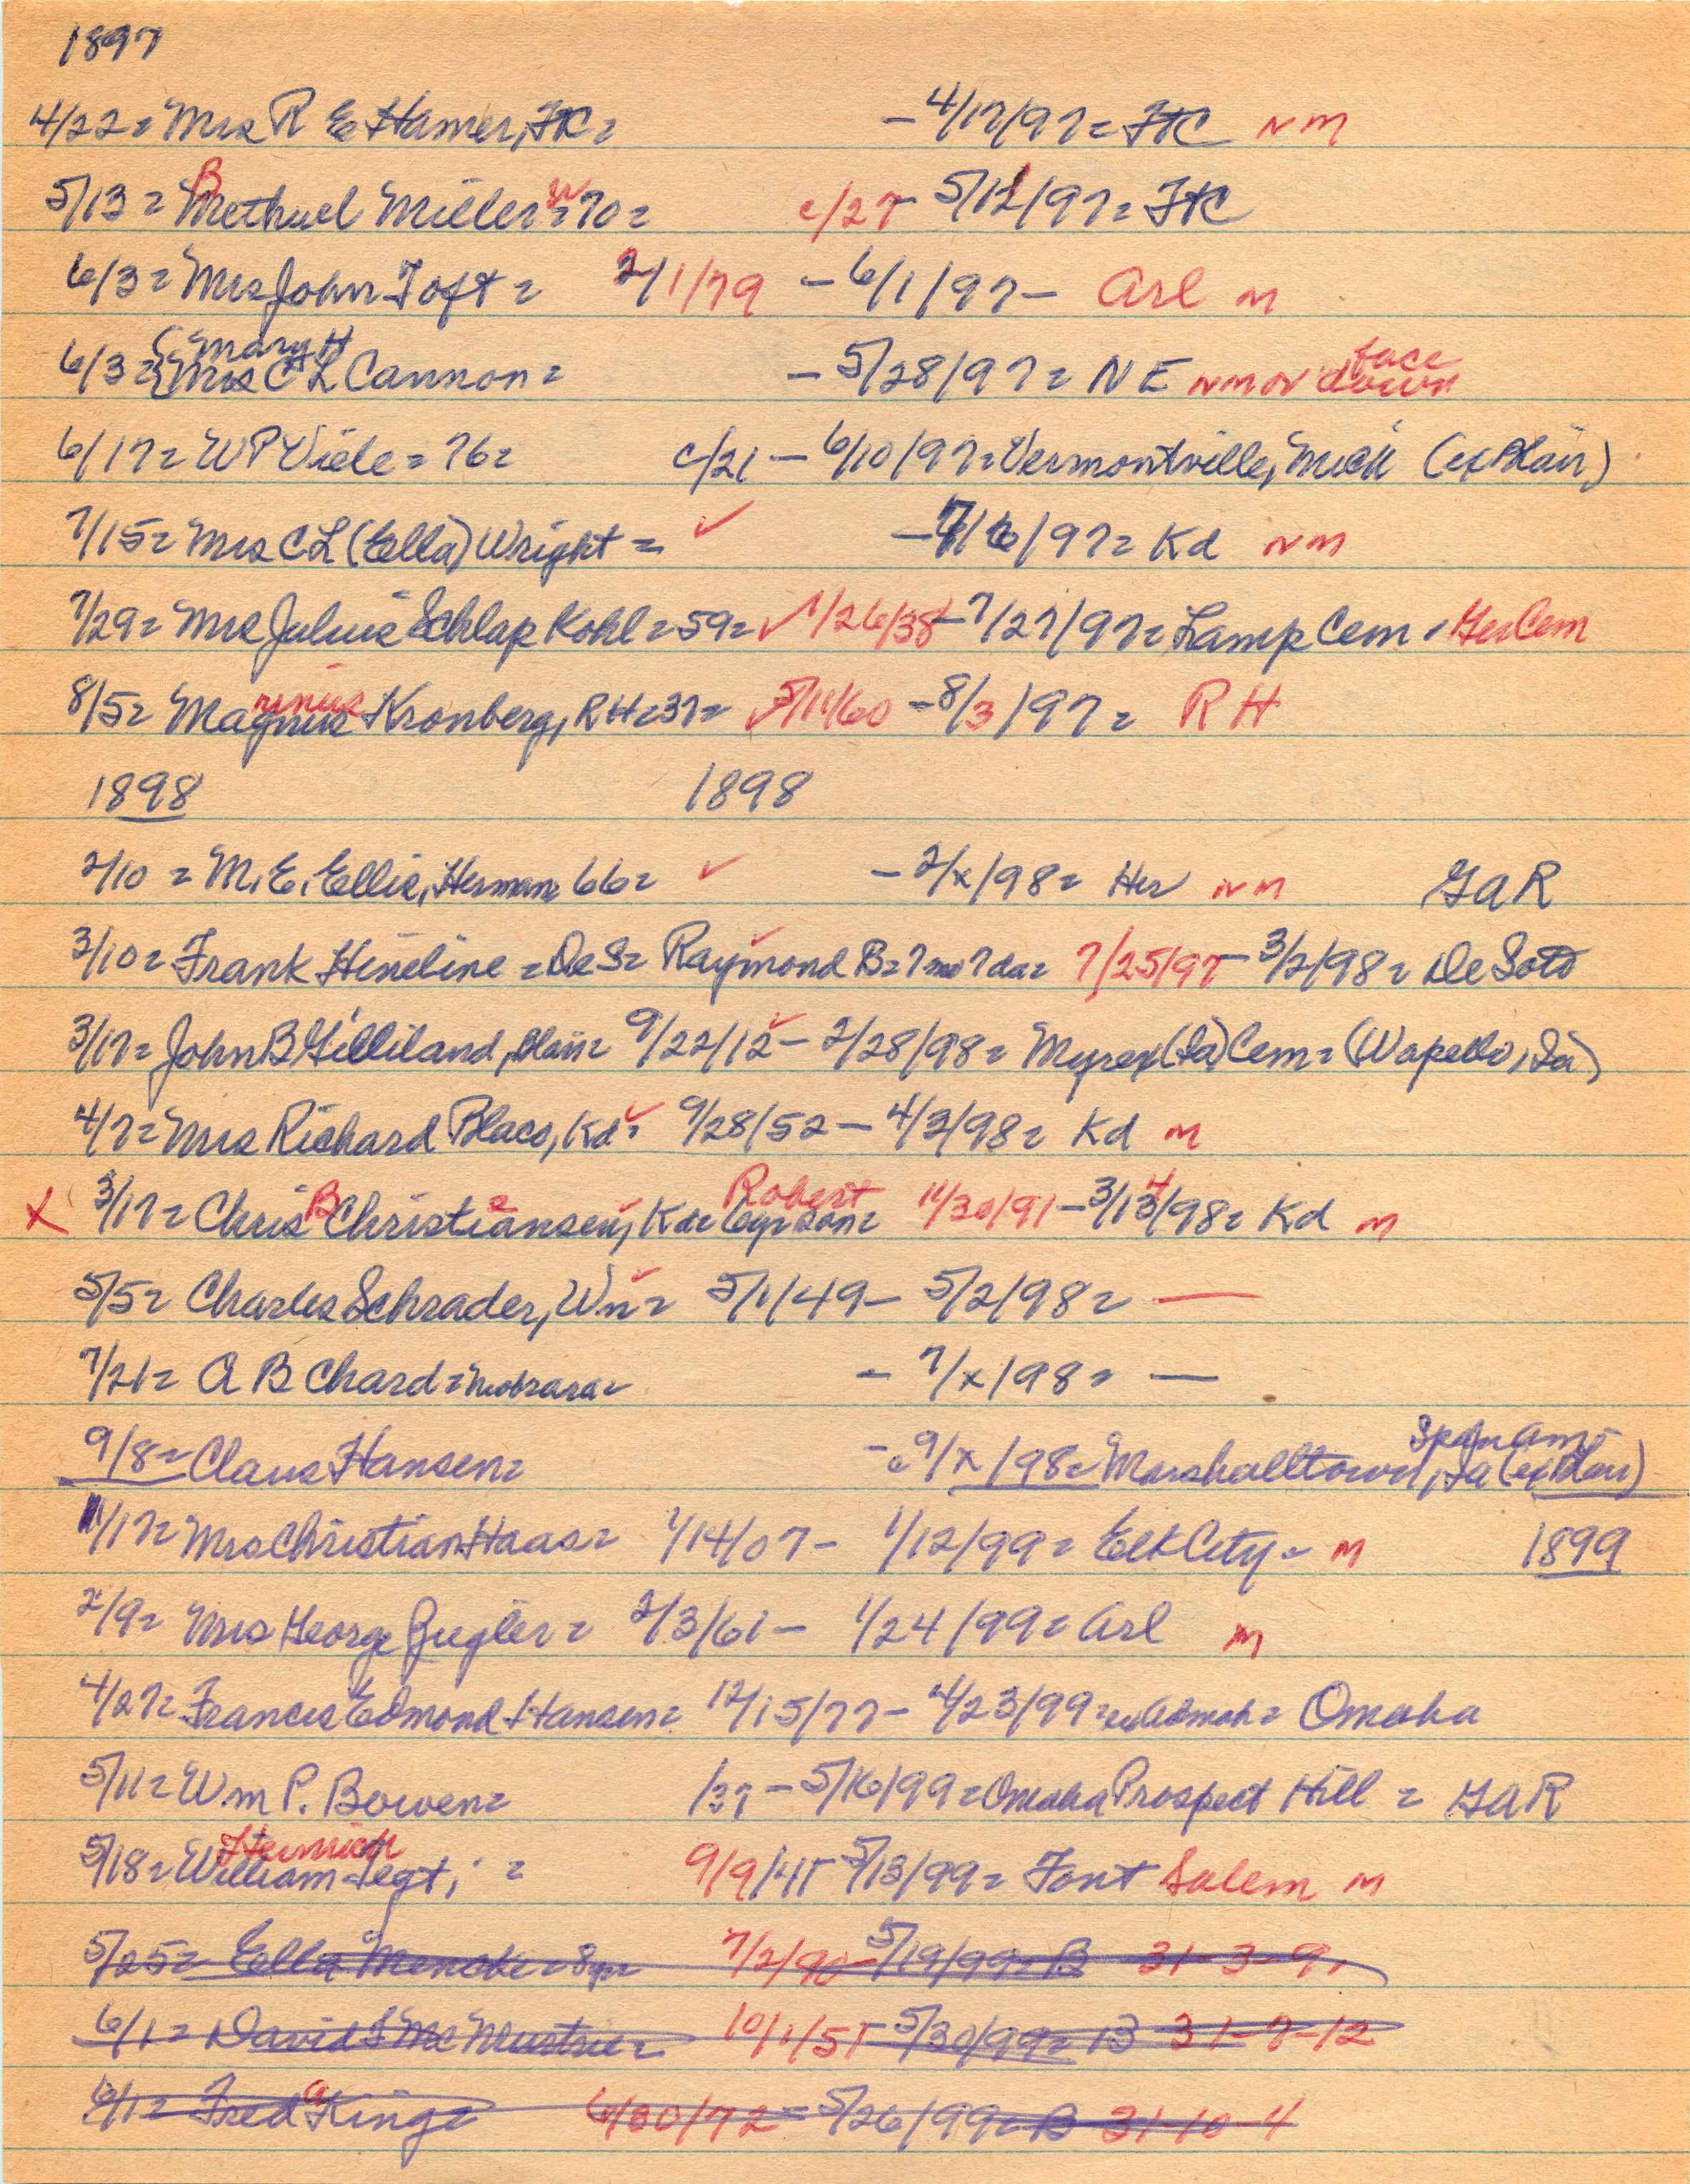 1897
4/22 = Mrs R E Hamer, FtC = - 4/17/97 = FtC NM
5/13 = Methuel Miller = 70 = c/27 - 5/12/97 = FtC
B
6/3 = Mrs John Toft = 2/1/79 - 6/1/97 - Arl M
Mary H face
6/3 = Mrs C L Cannon = - 5/28/97 = N E NM or down
6/17 = W P Viele = 76 = c/21 - 6/10/97 = Vermontville, Mich (ex Blair)
7/15 = Mrs C L (Ella) Wright = ✓ - 7/6/97 = Kd NM
7/29 = Mrs Julius Schlap Kohl = 59 = ✓ 1/26/38 - 7/27/97 = Lamp Cem, Ger Cem
rinus
8/5 = Magnus Kronberg, RH = 37 = ✓ 5/11/60 - 8/3/97 = RH
1898 1898
2/10 = M. E. Ellis, Herman = 66 = ✓ - 2/x/98 = Her NM GAR
3/10 = Frank Hineline = DeS = Raymond B = 7 mo 7 da = 7/25/97 - 3/2/98 = DeSoto
3/17 = John B Gilliland, Blair = 9/22/12 ✓ - 2/28/98 = (Ia) Cem = (Wapello, Ia)
4/7 = Mrs Richard Blaco, Kd = ✓ 9/28/52 - 4/2/98 = Kd M
B e Robert 4
X 3/17 = Chris Christiansen, Kd = 6yr son = 11/30/91 - 3/13/98 = Kd M
5/5 = Charles Schrader, Wn = ✓ 5/1/49 - 5/2/98 = —
7/21 = A B Chard = Niobrara = - 7/x/98 = —
Span Am
9/8 = Claus Hansen = - 9/x/98 = Marshalltown, Ia (ex Blair)
1/17 = Mrs Christian Haas = 1/14/07 - 1/12/99 = Elk City = M 1899
2/9 = Mrs George Ziegler = 2/3/61 - 1/24/99 = Arl M
4/27 = Francis Edmond Hansen = 12/15/77 - 4/23/99 = ex Admah = Omaha
5/11 = Wm P. Bowen = /37 - 5/16/99 = Omaha Prospect Hill = GAR
Heinrich
5/18 = William Jegt, = 9/9/41 - 5/13/99 = Font Salem M
5/25 = Ella Mencke = 8yr = 7/2/90 - 5/19/99 = B 31-3-9
6/1 = David = 10/1/51 - 5/30/99 = B 31-7-12
a
6/1 = Fred King = 6/30/72 - 5/26/99 = B 31-10-4